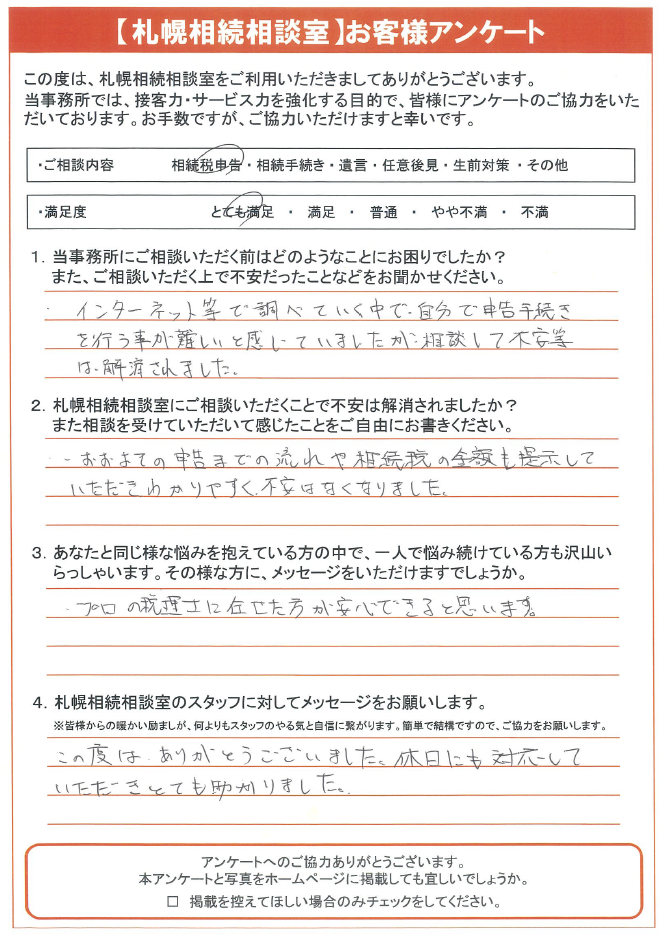 【札幌相続相談室】お客様アンケート
この度は、札幌相続相談室をご利用いただきましてありがとうございます。
当事務所では、接客力・サービス力を強化する目的で、皆様にアンケートのご協力をいた
だいております。お手数ですが、ご協力いただけますと幸いです。
・ご相談内容 相続税申告・相続手続き・遺言・任意後見・生前対策・その他
・満足度 とても満足 ・ 満足 ・ 普通 ・ やや不満 ・ 不満
1．当事務所にご相談いただく前はどのようなことにお困りでしたか？
また、ご相談いただく上で不安だったことなどをお聞かせください。
・インターネット等で調べていく中で、自分で申告手続き
を行う事が難しいと感じていましたが、相談して不安等
は、解消されました。
2．札幌相続相談室にご相談いただくことで不安は解消されましたか？
また相談を受けていただいて感じたことをご自由にお書きください。
・おおよその申告までの流れや相続税の金額も提示して
いただきわかりやすく、不安はなくなりました。
3．あなたと同じ様な悩みを抱えている方の中で、一人で悩み続けている方も沢山い
らっしゃいます。その様な方に、メッセージをいただけますでしょうか。
・プロの税理士に任せた方が安心できると思います。
4．札幌相続相談室のスタッフに対してメッセージをお願いします。
※皆様からの暖かい励ましが、何よりもスタッフのやる気と自信に繋がります。簡単で結構ですので、ご協力をお願いします。
この度は、ありがとうございました。休日にも対応して
いただきとても助かりました。
アンケートへのご協力ありがとうございます。
本アンケートと写真をホームページに掲載しても宜しいでしょうか。
□ 掲載を控えてほしい場合のみチェックをしてください。